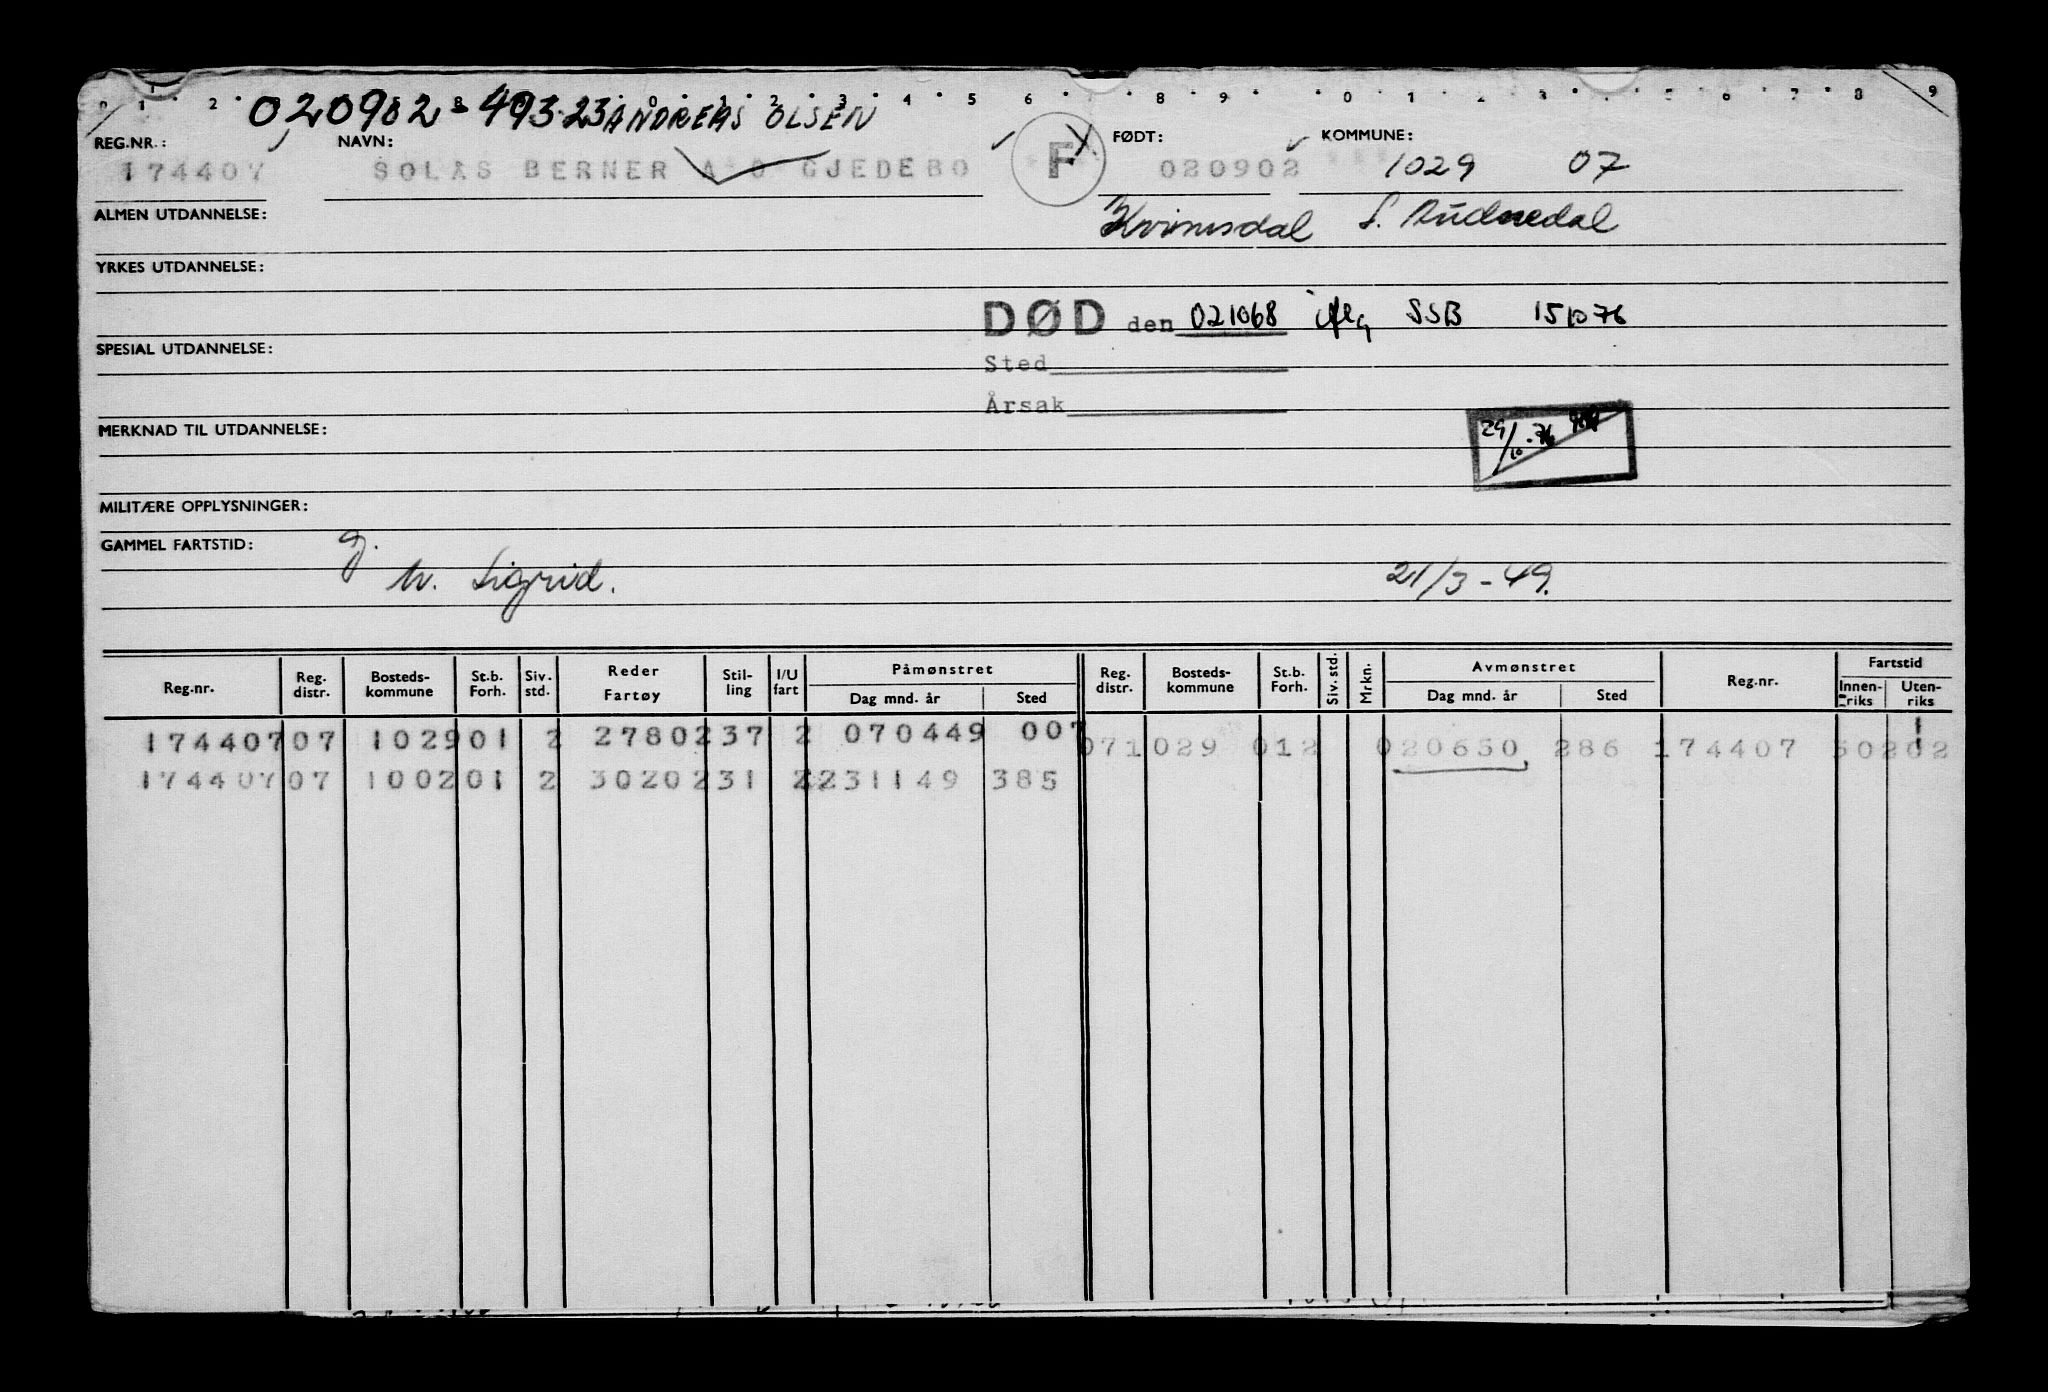 020902-493.23 ANDREAS OLSEN
REG.NR.: NAVN: FØDT: KOMMUNE:
174407 SOLÅS BERNER A O GJEDEBO F 020902 1029 07
ALMEN UTDANNELSE: Kvinesdal S. Audnedal
YRKES UTDANNELSE:
DØD den 021068 iflg SSB 151076
SPESIAL UTDANNELSE:
Sted
Årsak
MERKNAD TIL UTDANNELSE:
29/10-76
MILITÆRE OPPLYSNINGER:
GAMMEL FARTSTID:
M. Sigrid. 21/3-49.
Reg.nr. Reg. distr. Bosteds-kommune St.b. Forh. Siv. std. Reder Fartøy Stil-ling I/U fart Påmønstret Dag mnd. år Sted Reg. distr. Bosteds-kommune St.b. Forh. Siv. std. Mrkn. Avmønstret Dag mnd. år Sted Reg.nr. Fartstid Innen-riks Uten-riks
174407 07 1029 01 2 2780 237 2 070449 007 07 1029 012 020650 286 174407 50202
174407 07 1002 01 2 3020 231 2 231149 385